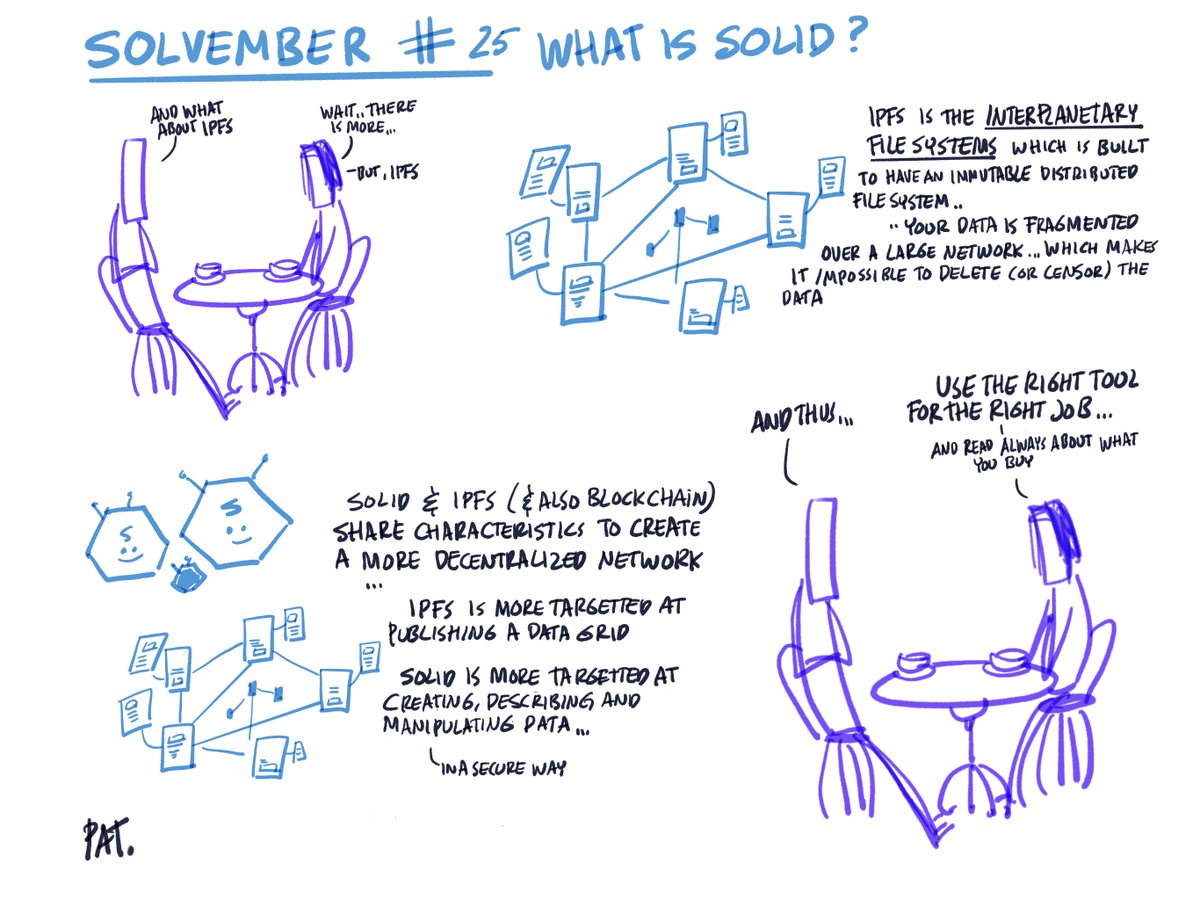 SOLVEMBER # 25 WHAT IS SOLID?
AND WHAT
ABOUT IPFS
WAIT.. THERE
IS MORE...
BUT, IPFS
IPFS IS THE INTERPLANETARY
FILE SYSTEMS WHICH IS BUILT
TO HAVE AN INMUTABLE DISTRIBUTED
FILE SYSTEM..
.. YOUR DATA IS FRAGMENTED
OVER A LARGE NETWORK... WHICH MAKES
IT IMPOSSIBLE TO DELETE (OR CENSOR) THE
DATA
SOLID & IPFS (& ALSO BLOCKCHAIN)
SHARE CHARACTERISTICS TO CREATE
A MORE DECENTRALIZED NETWORK
...
IPFS IS MORE TARGETTED AT
PUBLISHING A DATA GRID
SOLID IS MORE TARGETTED AT
CREATING, DESCRIBING AND
MANIPULATING DATA...
IN A SECURE WAY
AND THUS...
USE THE RIGHT TOOL
FOR THE RIGHT JOB...
AND READ ALWAYS ABOUT WHAT
YOU BUY
S
S
PAT.